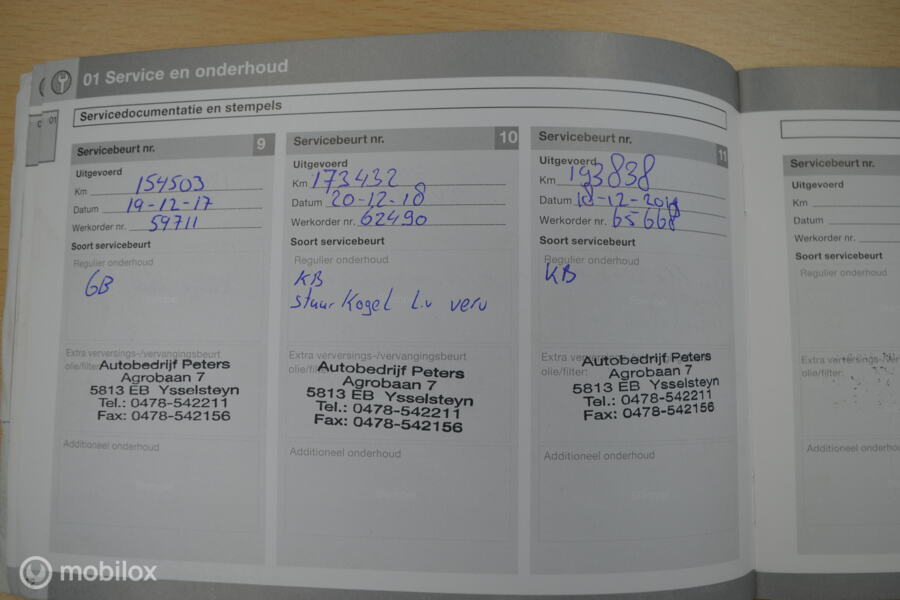 01 Service en onderhoud
01
Servicedocumentatie en stempels
Servicebeurt nr. 9
Uitgevoerd
Km 154503
Datum 19-12-17
Werkorder nr. 59711
Soort servicebeurt
Regulier onderhoud
GB
Extra verversings-/vervangingsbeurt
olie/filter:
Autobedrijf Peters
Agrobaan 7
5813 EB Ysselsteyn
Tel.: 0478-542211
Fax: 0478-542156
Additioneel onderhoud
Servicebeurt nr. 10
Uitgevoerd
Km 173432
Datum 20-12-18
Werkorder nr. 62490
Soort servicebeurt
Regulier onderhoud
KB
stuur Kogel L.v verv
Extra verversings-/vervangingsbeurt
olie/filter:
Autobedrijf Peters
Agrobaan 7
5813 EB Ysselsteyn
Tel.: 0478-542211
Fax: 0478-542156
Additioneel onderhoud
Servicebeurt nr. 11
Uitgevoerd
Km 193838
Datum 18-12-2019
Werkorder nr. 65668
Soort servicebeurt
Regulier onderhoud
KB
olie/filter:
Autobedrijf Peters
Agrobaan 7
5813 EB Ysselsteyn
Tel.: 0478-542211
Fax: 0478-542156
Additioneel onderhoud
Servicebeurt nr.
Uitgevoerd
Km
Datum
Werkorder nr.
Soort servicebeurt
Regulier onderhoud
olie/filter:
mobilox